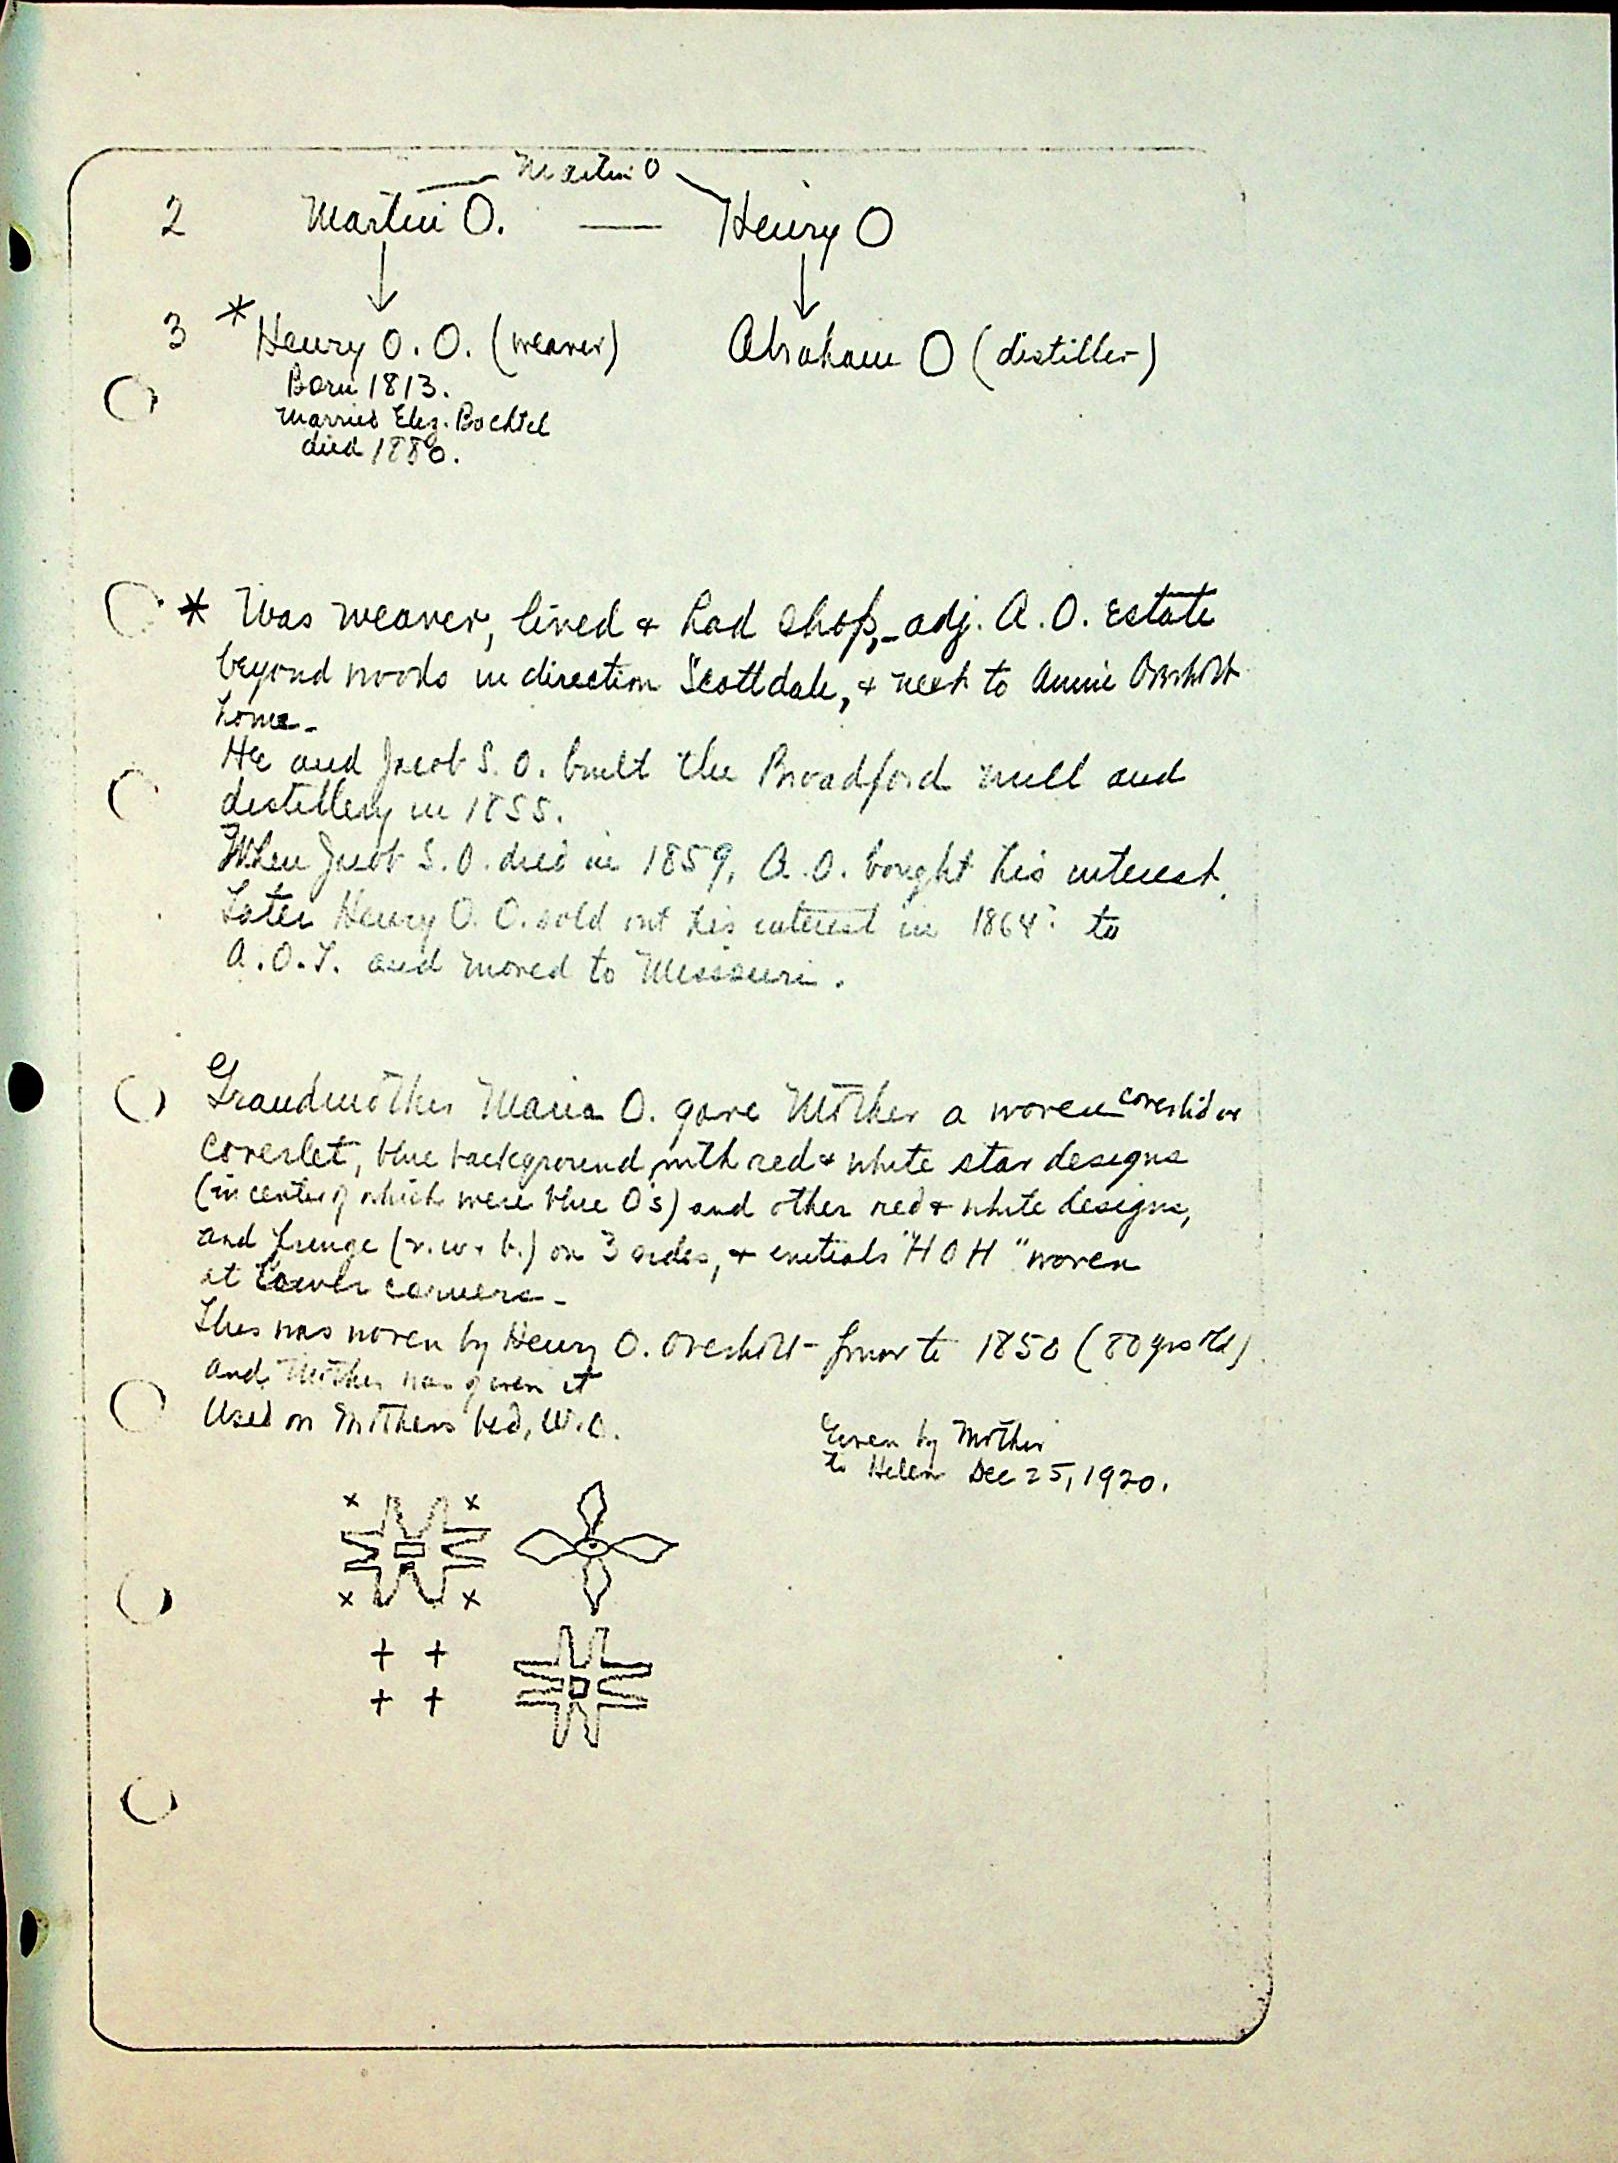 Martin O
2 Martin O. — Henry O
3 * Henry O. O. (weaver) Abraham O (distiller)
Born 1813.
Married Eliz. Bechtel
died 1880.
* Was weaver, lived & had shop, - adj. A. O. Estate
beyond woods in direction Scottdale, & next to Annie Overholt
home -
He and Jacob S. O. built the Broadford mill and
distillery in 1855.
When Jacob S. O. died in 1859, A. O. bought his interest.
Later Henry O. O. sold out his interest in 1864 to
A. O. T. and moved to Missouri.
Grandmother Maria O. gave Mother a woven coverlid or
coverlet, blue background with red & white star designs
(in center of which were blue O's) and other red & white designs,
and fringe (r. w. & b.) on 3 sides, & initials "H O H" woven
at lower corners -
This was woven by Henry O. Overholt - prior to 1850 (80 yrs old)
and Mother was given it
Used on Mothers bed, W.O.
Given by Mother
to Helen Dec 25, 1920.